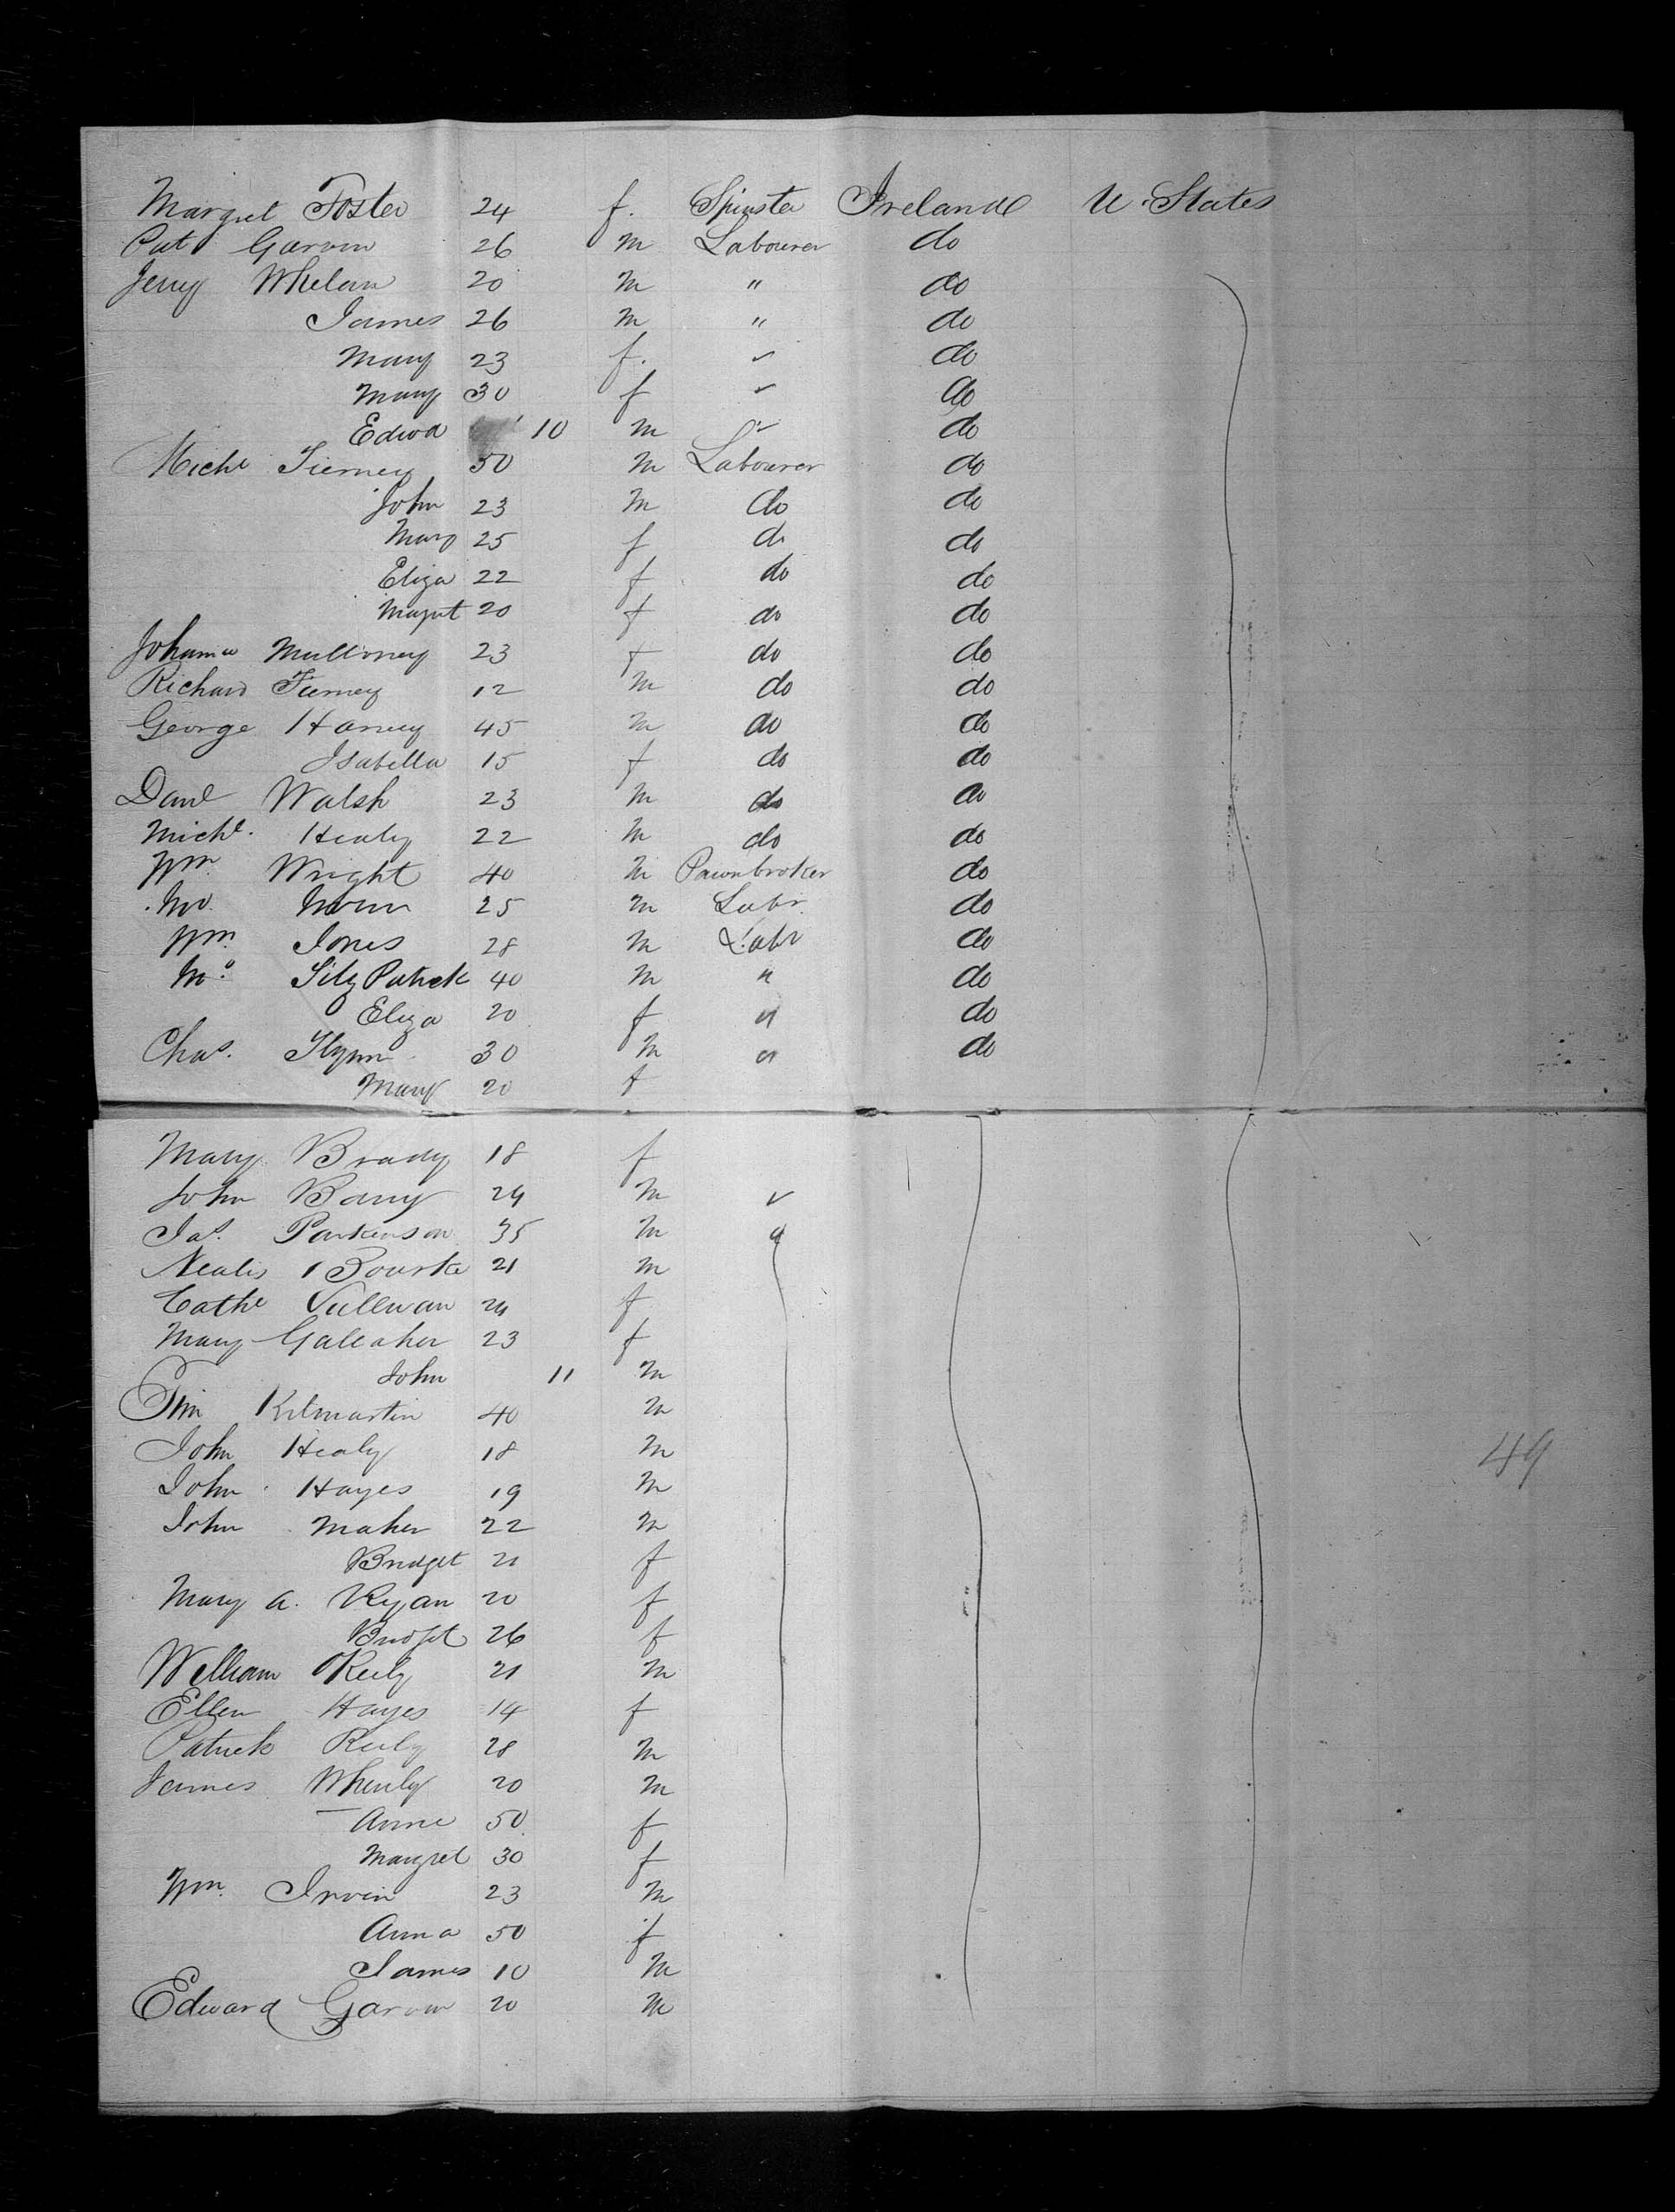 Margret Foster 24 f. Spinster Ireland U. States
Pat Garvin 26 m Labourer do
Jerry Whelan 20 m " do
James 26 m " do
Mary 23 f. " do
Mary 30 f " do
Edwd 10 m " do
Michl Tierney 50 m Labourer do
John 23 m do do
Mary 25 f do do
Eliza 22 f do do
Magrt 20 f do do
Johanna Mulloney 23 f do do
Richard Tierney 12 m do do
George Harvey 45 m do do
Isabella 15 f do do
Danl Walsh 23 m do do
Michl. Healy 22 m do do
Wm. Wright 40 m Pawnbroker do
25 m Labr. do
Wm. Jones 28 m Labr do
Mo. FitzPatrick 40 m " do
Eliza 20 f " do
Chas. Flynn 30 m " do
Mary 20 f
Mary Brady 18 f
John Barry 24 m "
Jas. Parkinson 35 m "
Bourke 21 m
Cathe Sullivan 24 f
Mary Galeaher 23 f
John 11 m
Tim Kilmartin 40 m
John Healy 18 m
John Hayes 19 m
John Maher 22 m
Bridget 21 f
Mary A. Ryan 20 f
Bridget 26 f
William Reily 21 m
Ellen Hayes 14 f
Patrick Reily 28 m
James Whealy 20 m
Anne 50 f
Margret 30 f
Wm. Irvin 23 m
Anna 50 f
James 10 m
Edward Garvin 20 m
49